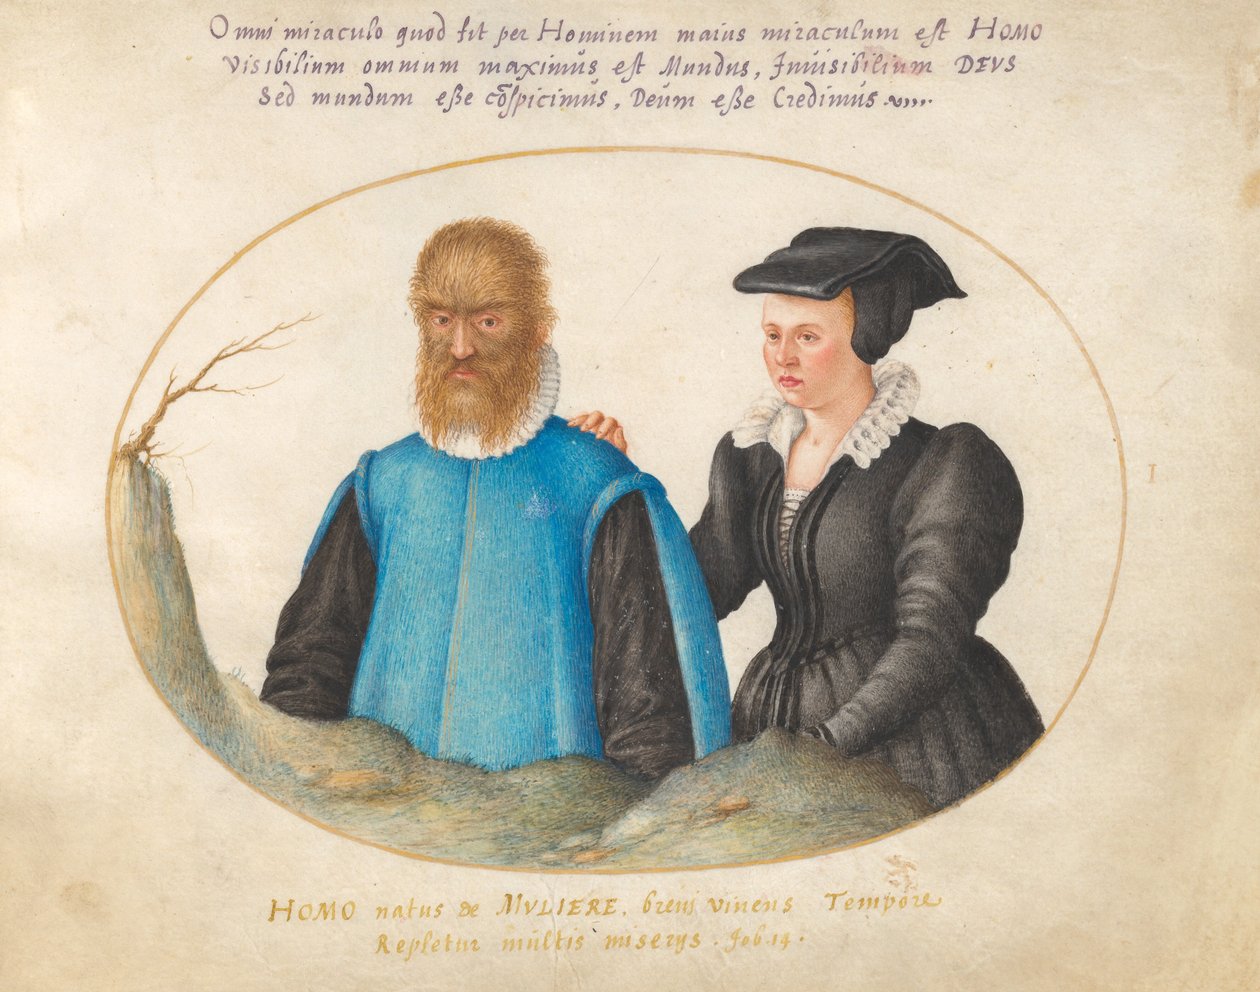 Omni miraculo quod fit per Hominem maius miraculum est HOMO
Visibilium omnium maximus est Mundus, Invisibilium DEVS
Sed mundum eße cōspicimus, Deum eße Credimus
I
HOMO natus de MVLIERE, breui viuens Tempore
Repletur multis miserys. Job.14.